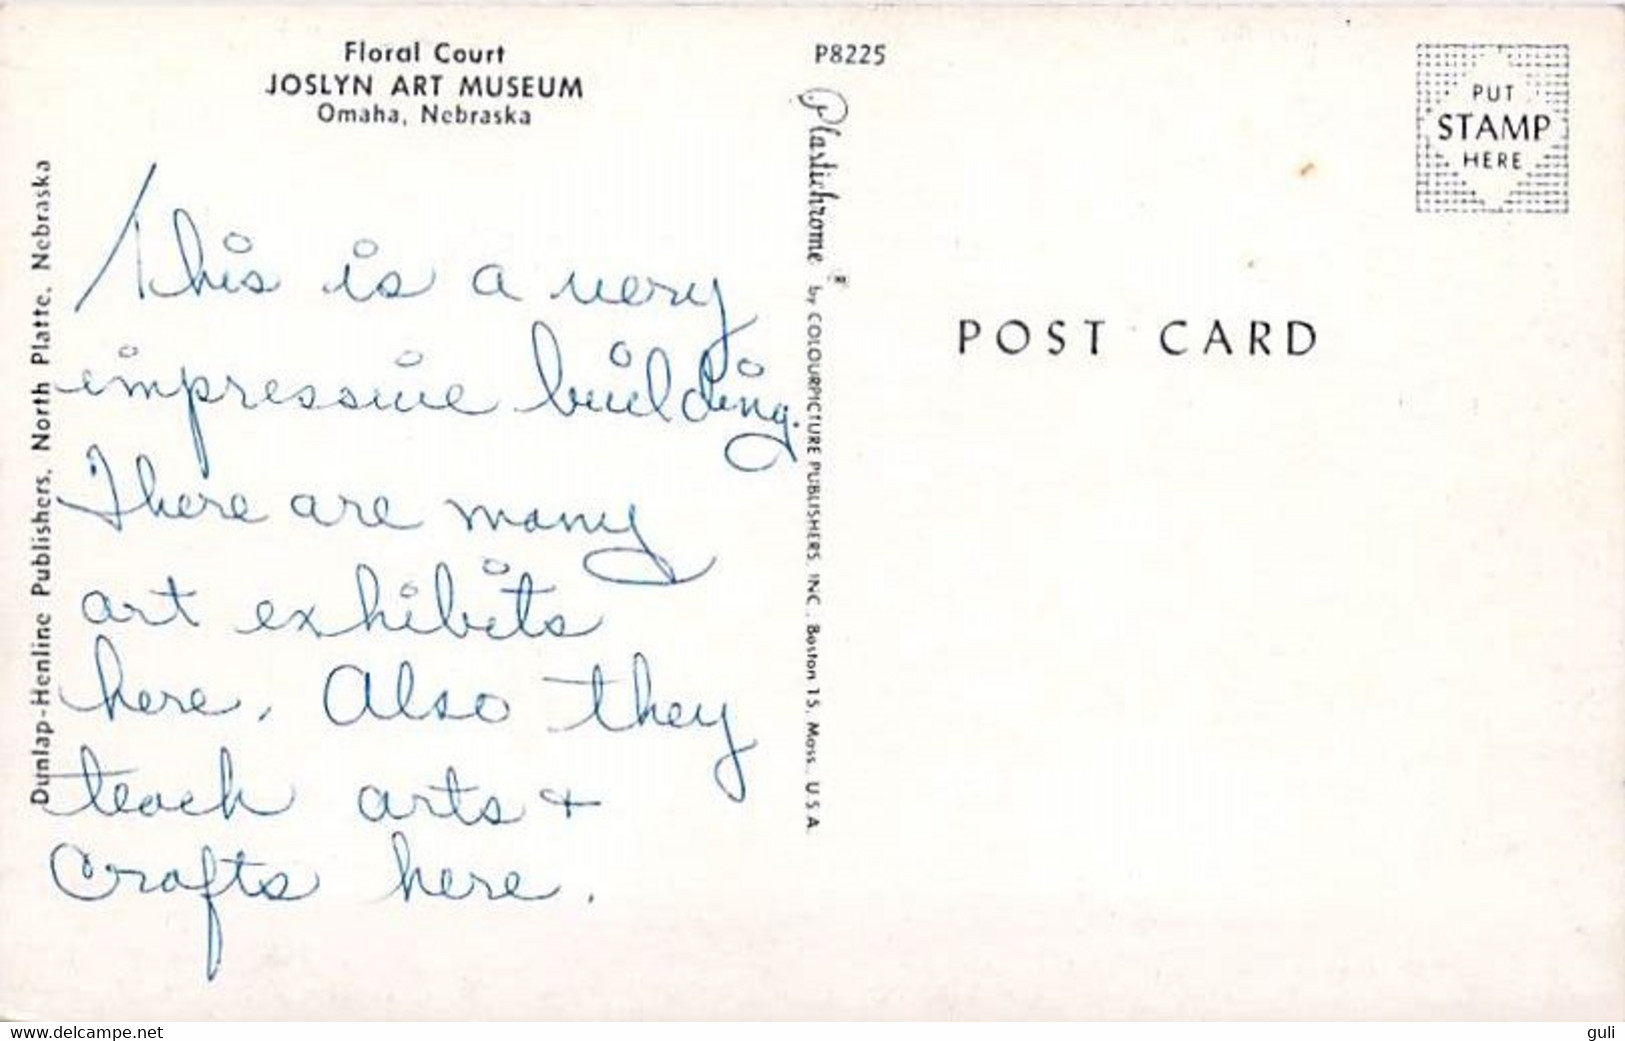 Floral Court
JOSLYN ART MUSEUM
Omaha, Nebraska
P8225
PUT
STAMP
HERE
Dunlap-Henline Publishers, North Platte, Nebraska
This is a very
impressive building.
There are many
art exhibits
here. Also they
teach arts +
Crafts here.
Plastichrome ® by COLOURPICTURE PUBLISHERS, INC., Boston 15, Mass., U.S.A.
POST CARD
www.delcampe.net
guli